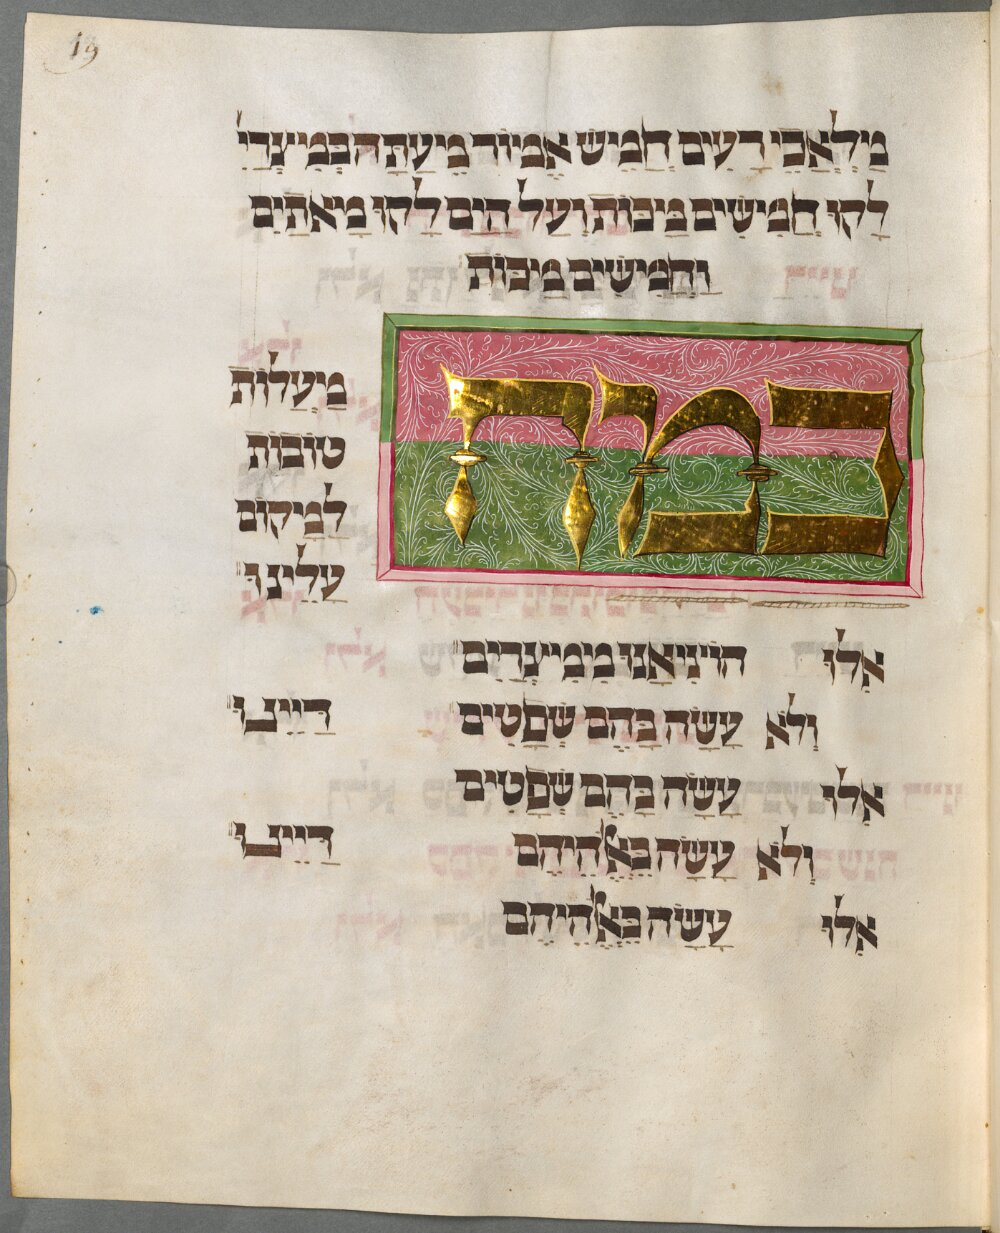 19
מלאכי רעים חמיש אמור מעתה במצרי
לקו חמישים מכות ועל הים לקו מאתים
וחמישים מכות
כמה
מעלות
טובות
למקום
עלינו
אלו הוציאנו ממצרים
ולא עשה בהם שפטים דיינו
אלו עשה בהם שפטים
ולא עשה באלהיהם דיינו
אלו עשה באלהיהם